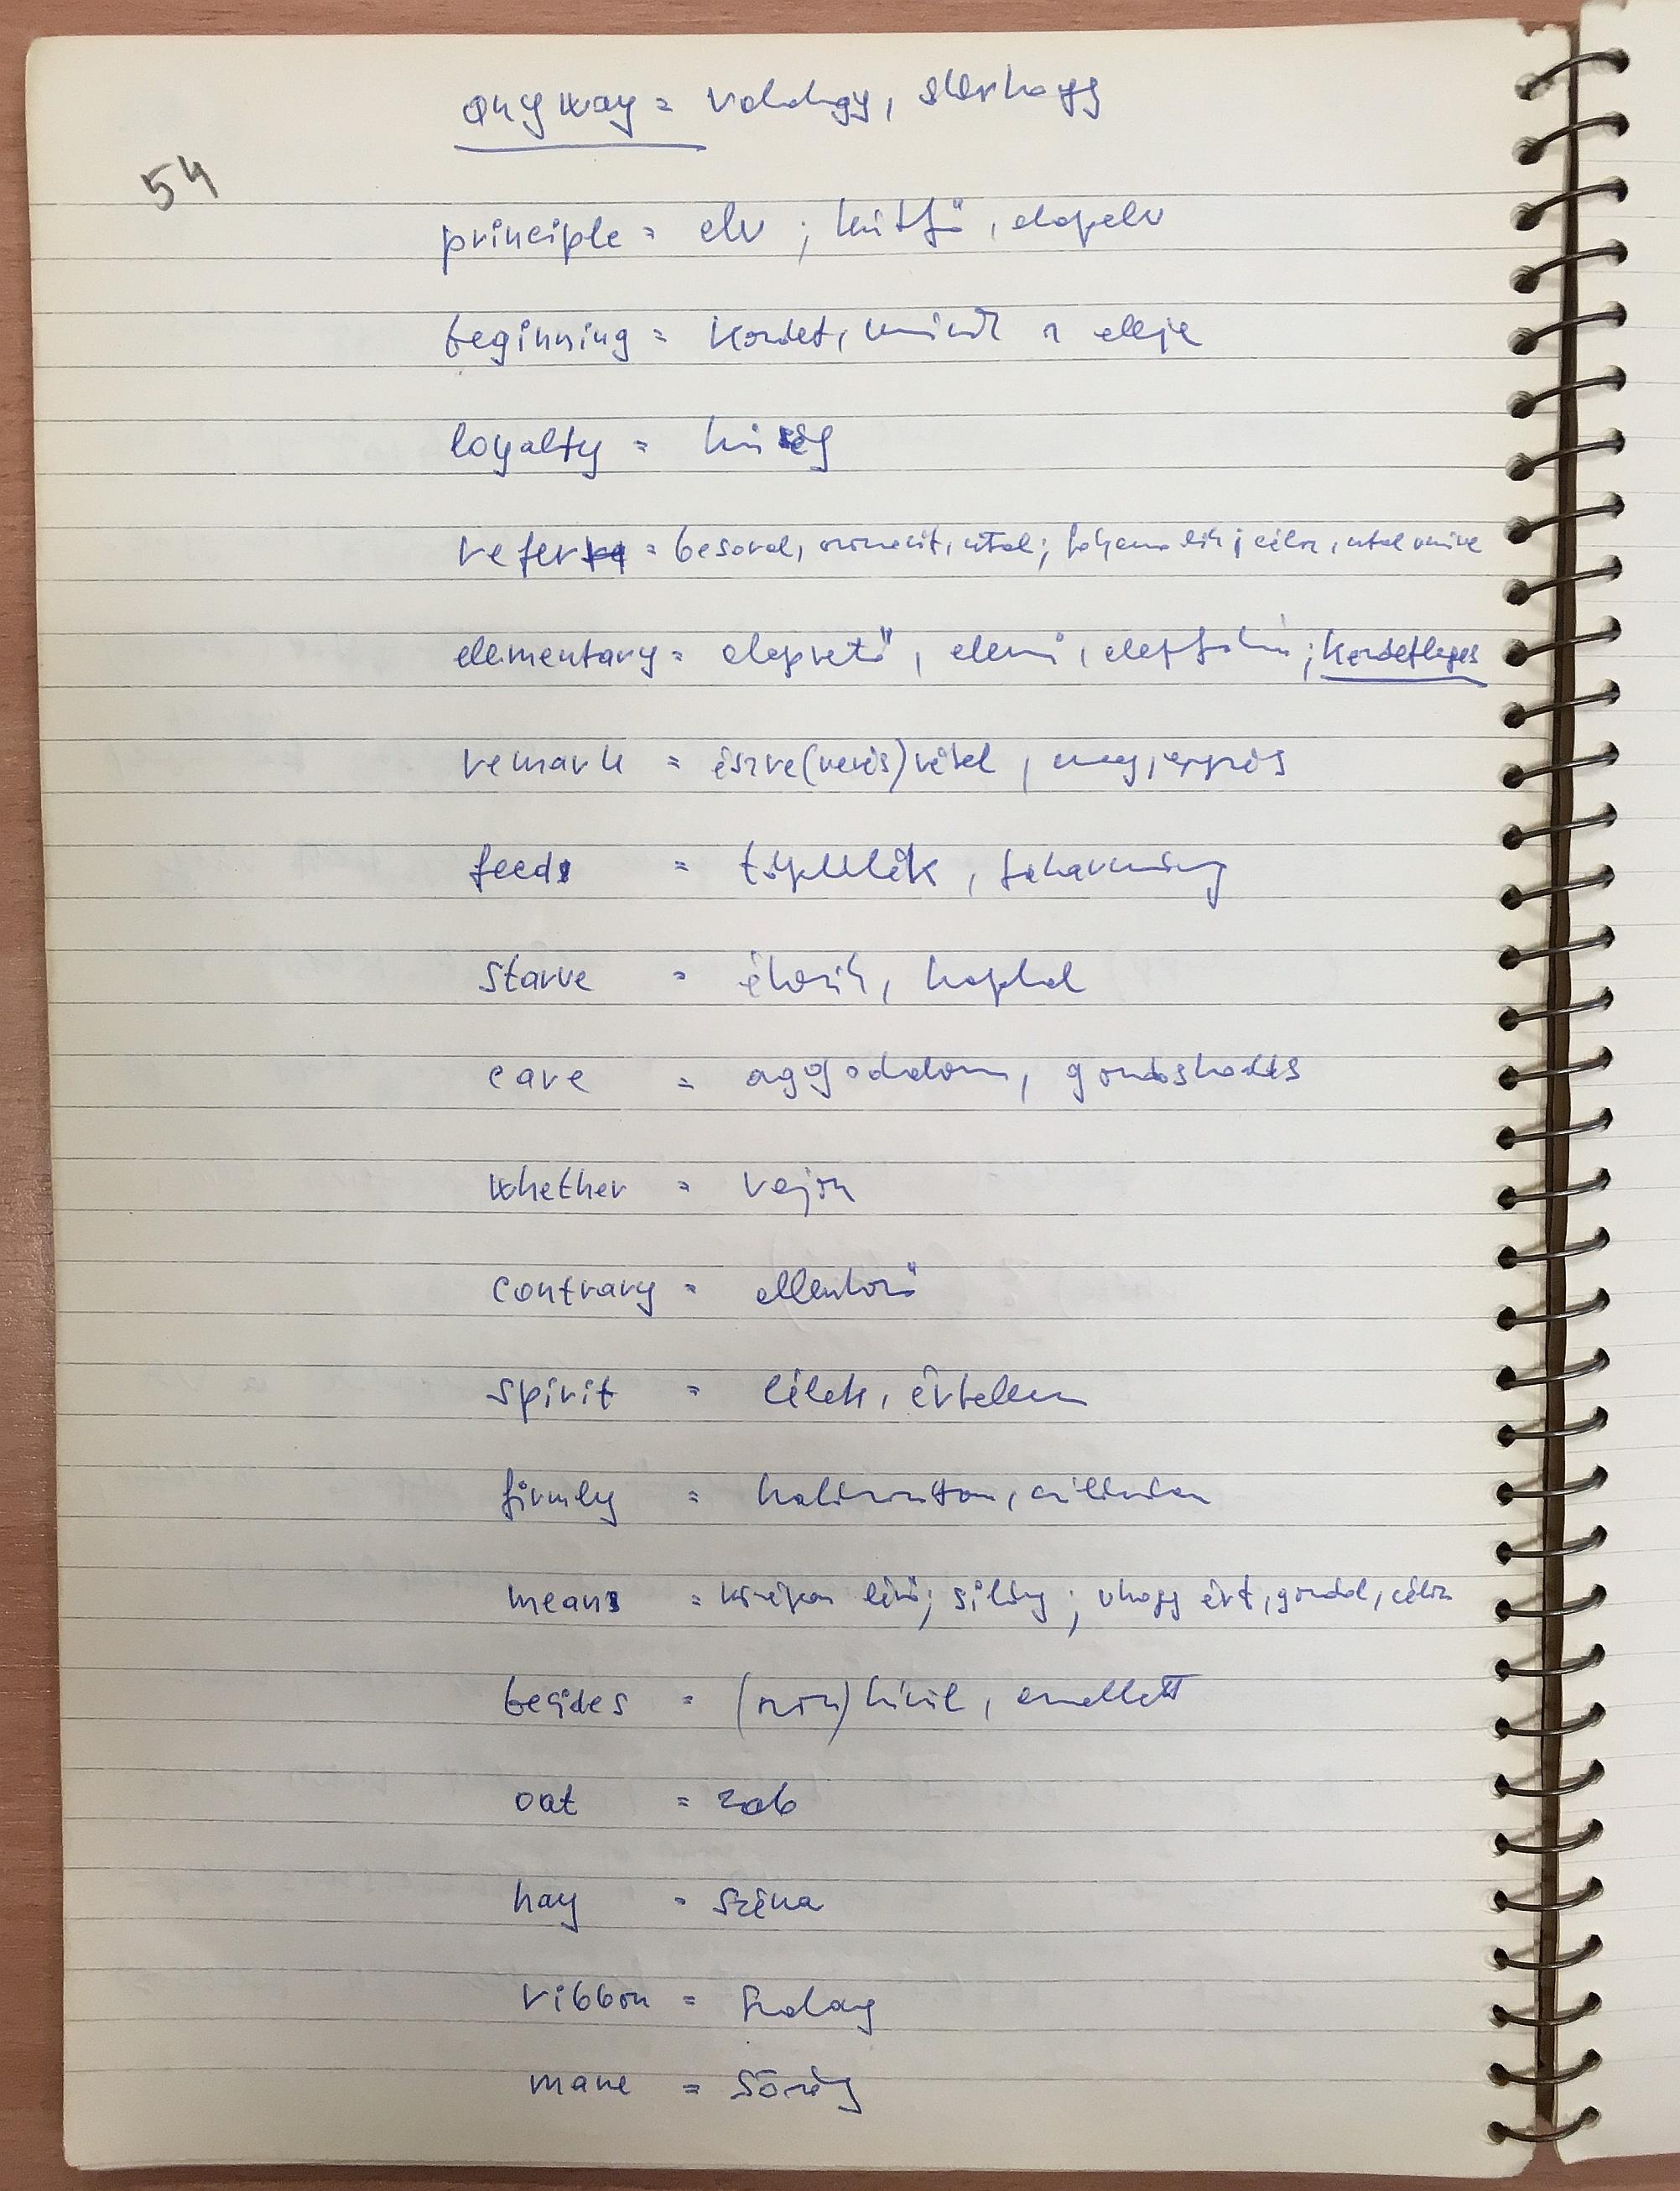 anyway = valahogy, akárhogy
54
principle = elv ; kútfő, alapelv
beginning = kezdet, vminek a eleje
loyalty = hűség
refer = besorol, utal; folyamodik ; céloz, utal vmire
elementary = alapvető, elemi, alapfokú ; kezdetleges
remark = észre(vevés)vétel, megjegyzés
feed = táplálék, takarmány
starve = éhezik, koplal
care = aggodalom, gondoskodás
whether = vajon
contrary = ellenkező
spirit = lélek, értelem
firmly = határozottan, szilárdan
means = középen lévő; silány; vhogy ért, gondol, céloz
besides = (azon) kívül, emellett
oat = zab
hay = széna
ribbon = szalag
mane = sörény